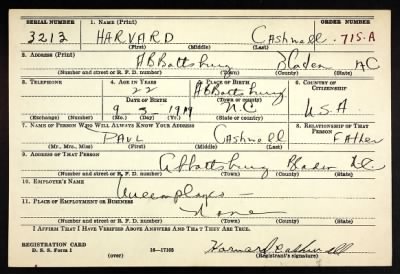 SERIAL NUMBER 1. NAME (Print) ORDER NUMBER
3213 HARVARD Cashwell 715-A
(First) (Middle) (Last)
2. ADDRESS (Print)
ABBottsburg Bladen N C
(Number and street or R. F. D. number) (Town) (County) (State)
3. TELEPHONE 4. AGE IN YEARS 5. PLACE OF BIRTH 6. COUNTRY OF CITIZENSHIP
22 ABBottsburg
DATE OF BIRTH (Town or county)
9 - 3 - 1919 N.C. U.S.A.
(Exchange) (Number) (Mo.) (Day) (Yr.) (State or country)
7. NAME OF PERSON WHO WILL ALWAYS KNOW YOUR ADDRESS 8. RELATIONSHIP OF THAT PERSON
PAUL Cashwell Father
(Mr., Mrs., Miss) (First) (Middle) (Last)
9. ADDRESS OF THAT PERSON
Abbottsburg Bladen N.C.
(Number and street or R. F. D. number) (Town) (County) (State)
10. EMPLOYER'S NAME
Unemployed —
11. PLACE OF EMPLOYMENT OR BUSINESS
None
(Number and street or R. F. D. number) (Town) (County) (State)
I AFFIRM THAT I HAVE VERIFIED ABOVE ANSWERS AND THAT THEY ARE TRUE.
REGISTRATION CARD
D. S. S. Form 1 16—17105 Harvard Cashwell
(over) (Registrant's signature)